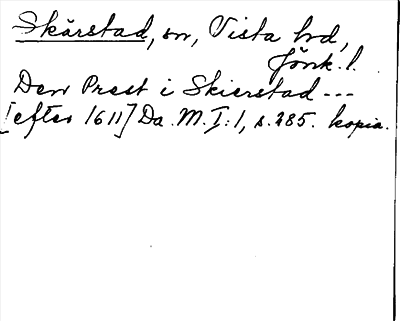 Skärstad, sn, Vista hd,
Jönk. l.
Den Prest i Skierstad ---
[efter 1611] Da. M. I: 1, s. 285. kopia.